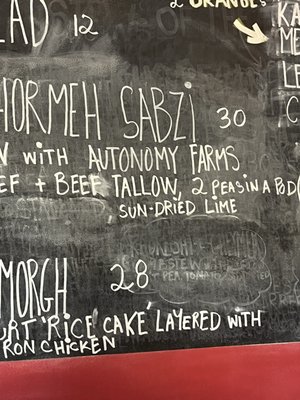 2 ORANGES
EAD 12
KA
ME
LE
C
HORMEH SABZI 30
N WITH AUTONOMY FARMS
EF + BEEF TALLOW, 2 PEAS IN A POD
SUN-DRIED LIME
MORGH 28
URT 'RICE CAKE' LAYERED WITH
RON CHICKEN